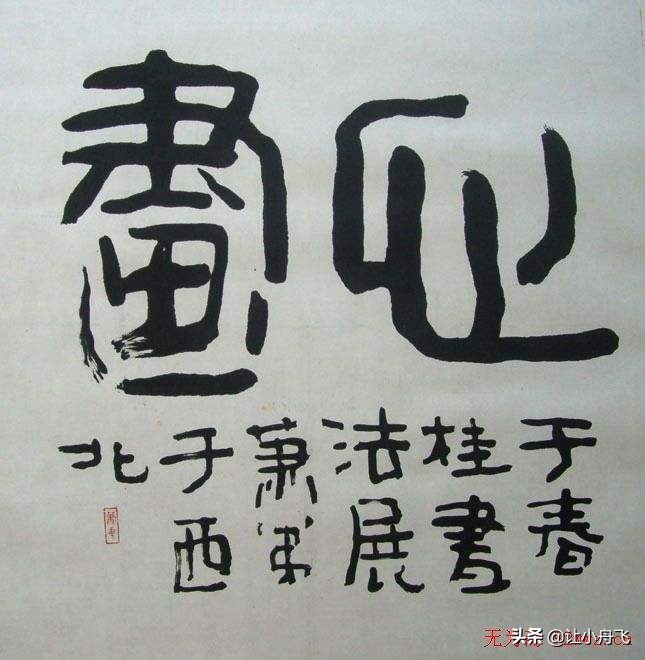 心畫
于春
桂書
法展
萧
于西
北
头条 @让小舟飞